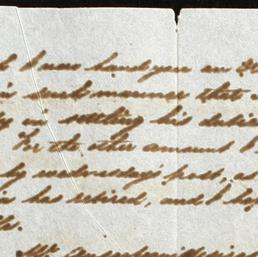 I now hand you an
in such manner that
in settling his
For the other amount I
by wednesday's post, as
has retired, and I